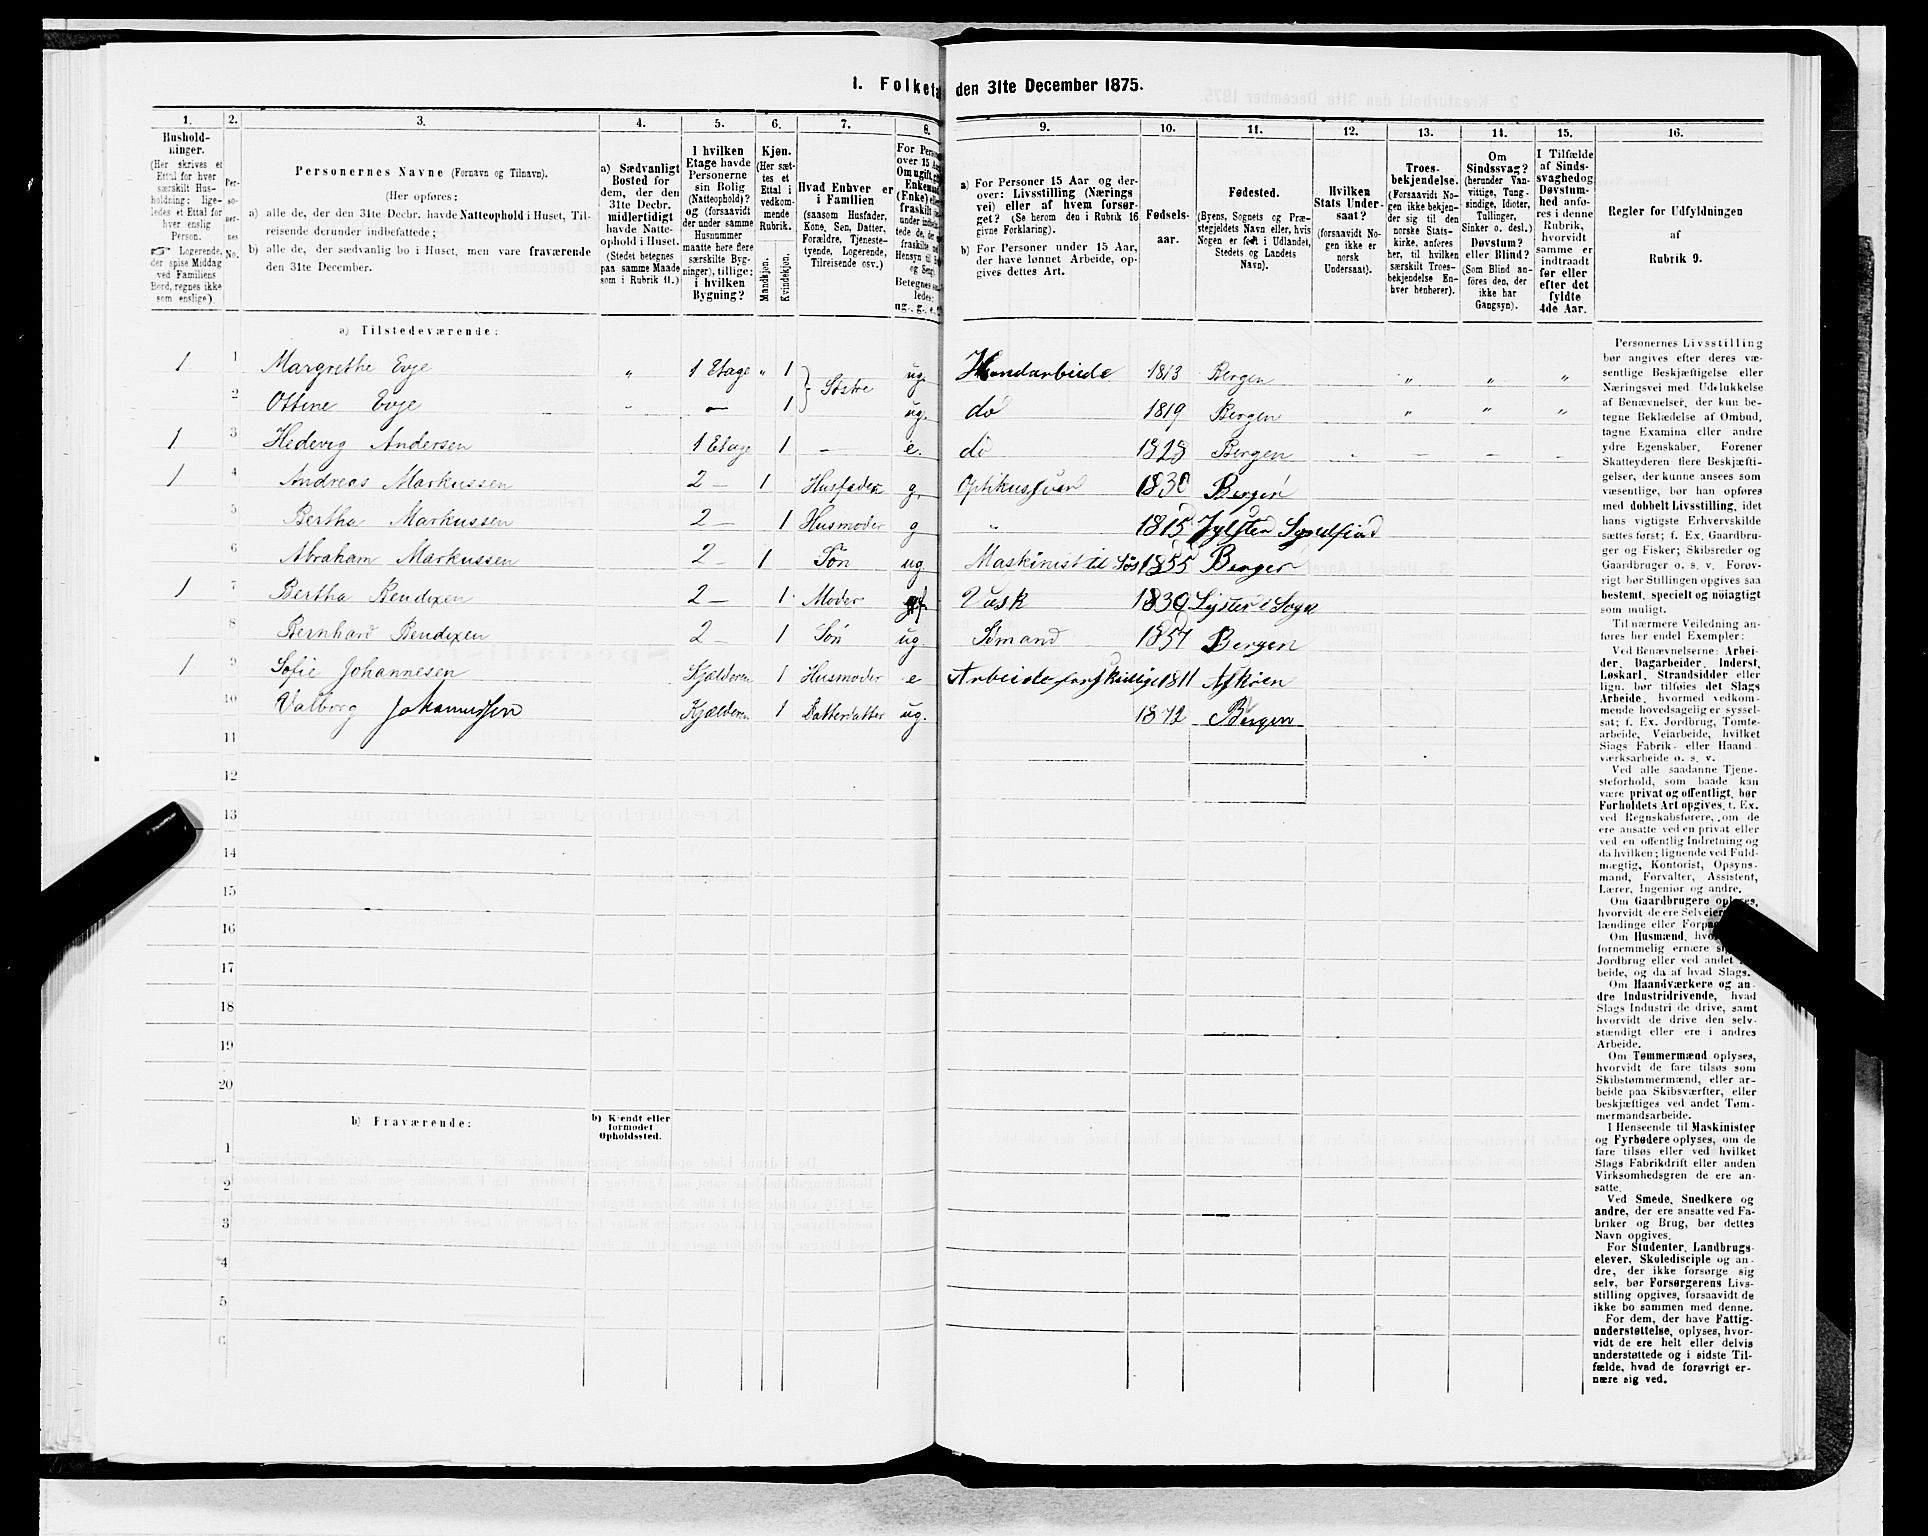 1. Folketæ den 31te December 1875.
1. 2. 3. 4. 5. 6. 7. 8. 9. 10. 11. 12. 13. 14. 15. 16.
Hushold-
ninger.
(Her skrives et
Ettal for hver
særskilt Hus-
holdning; lige-
ledes et Ettal for
hver enslig
Person.
☞ Logerende,
der spise Middag
ved Familiens
Bord, regnes ikke
som enslige).
Per-
so-
ner-
nes
No.
Personernes Navne (Fornavn og Tilnavn).
(Her opføres:
a) alle de, der den 31te Decbr. havde Natteophold i Huset, Til-
reisende derunder indbefattede;
b) alle de, der sædvanlig bo i Huset, men vare fraværende
den 31te December.
a) Sædvanligt
Bosted for
dem, der den
31te Decbr.
midlertidigt
havde Natte-
ophold i Huset.
(Stedet betegnes
paa samme Maade
som i Rubrik 11.)
I hvilken
Etage havde
Personerne
sin Bolig
(Natteophold)?
og (forsaavidt
der under samme
Husnummer
maatte høre flere
særskilte Byg-
ninger), tillige:
i hvilken
Bygning?
Kjøn.
(Her sæt-
tes et
Ettal i
vedkom-
mende
Rubrik.
Mandkjøn.
Kvindekjøn.
Hvad Enhver er
i Familien
(saasom Husfader,
Kone, Søn, Datter,
Forældre, Tjeneste-
tyende, Logerende,
Tilreisende osv.)
For Perso
over 15 Aa
Om ugift, g
Enkemand
(Enke) elle
fraskilt
under indbe
tede de, der
fraskilte
Hensyn til B
og Seng)
Betegnes saa
ledes:
ug., g., e.
a) For Personer 15 Aar og der-
over: Livsstilling (Nærings
vei) eller af hvem forsør-
get? (Se herom den i Rubrik 16
givne Forklaring).
b) For Personer under 15 Aar,
der have lønnet Arbeide, op-
gives dettes Art.
Fødsels-
aar.
Fødested.
(Byens, Sognets og Præ-
stegjeldets Navn eller, hvis
Nogen er født i Udlandet,
Stedets og Landets
Navn).
Hvilken
Stats Under-
saat?
(forsaavidt No-
gen ikke er
norsk
Undersaat).
Troes-
bekjendelse.
(Forsaavidt No-
gen ikke bekjen-
der sig til den
norske Stats-
kirke, anføres
her, til hvilken
særskilt Troes-
bekjendelse En-
hver henhører).
Om
Sindssvag?
(herunder Van-
vittige, Idioter,
Tullinger,
Sinker o. desl.)
Døvstum?
eller Blind?
(Som Blind an-
føres den, der
ikke har
Gangsyn).
I Tilfælde
af Sinds-
svaghed og
Døvstum-
hed anfø-
res i denne
Rubrik,
hvorvidt
samme er
indtraadt
før eller
efter det
fyldte
4de Aar.
Regler for Udfyldningen
af
Rubrik 9.
a) Tilstedeværende:
1 1 Margrethe Evje " 1 Etage " 1 Søstre ug. Haandarbeide 1813 Bergen " " "
2 Ottine Evje " — 1 ug. do 1819 Bergen " " "
1 3 Hedevig Andersen 1 Etage 1 — e. do 1823 Bergen - - - -
1 4 Andreas Markussen 2 — 1 Husfader g. Optikus 1830 Bergen
5 Bertha Markussen 2 — 1 Husmoder g " 1815 Jylster Søndfiord
6 Abraham Markussen 2 - 1 Søn ug Maskinist til Søs 1855 Bergen
1 7 Bertha Bendixen 2 — 1 Moder Vask 1830 Lyster i Sogn
8 Bernhard Bendixen 2 - 1 Søn ug Sømand 1857 Bergen
1 9 Sofie Johannesen Kjælderen 1 Husmoder e Arbeide forskjellig 1811 Askøen
10 Valborg Johannessen Kjælderen 1 Datterdatter ug. 1872 Bergen
11
12
13
14
15
16
17
18
19
20
b) Fraværende:
b) Kjendt eller
formodet
Opholdssted.
1
2
3
4
5
6
Personernes Livsstilling
bør angives efter deres væ-
sentlige Beskjæftigelse eller
Næringsvei med Udelukkelse
af Benævnelser, der kun be-
tegne Beklædelse af Ombud,
tagne Examina eller andre
ydre Egenskaber. Forener
Skatteyderen flere Beskjæfti-
gelser, der kunne ansees som
væsentlige, bør han opføres
med dobbelt Livsstilling, idet
hans vigtigste Erhvervskilde
sættes først; f. Ex. Gaardbru-
ger og Fisker; Skibsreder og
Gaardbruger o. s. v. Forøv-
rigt bør Stillingen opgives saa
bestemt, specielt og nøiagtigt
som muligt.
Til nærmere Veiledning an-
føres her endel Exempler:
Ved Benævnelserne: Arbei-
der, Dagarbeider, Inderst,
Løskarl, Strandsidder eller
lign. bør tilføies det Slags
Arbeide, hvormed vedkom-
mende hovedsagelig er syssel-
sat; f. Ex. Jordbrug, Tomte-
arbeide, Veiarbeide, hvilket
Slags Fabrik- eller Haand
værksarbeide o. s. v.
Ved alle saadanne Tjene-
steforhold, som baade kan
være privat og offentligt, bør
Forholdets Art opgives, t. Ex.
ved Regnskabsførere, om de
ere ansatte ved en privat eller
ved en offentlig Indretning og
da hvilken; lignende ved Fuld-
mægtig, Kontorist, Opsyns-
mand, Forvalter, Assistent,
Lærer, Ingeniør og andre.
Om Gaardbrugere oplyses,
hvorvidt de ere Selveiere
lændinge eller Forpa
Om Husmænd, hvo
fornemmelig ernære si
Jordbrug eller ved andet
beide, og da af hvad Slags.
Om Haandværkere og an-
dre Industridrivende, hvad
Slags Industri de drive, samt
hvorvidt de drive den selv-
stændigt eller ere i andres
Arbeide.
Om Tømmermænd oplyses,
hvorvidt de fare tilsøs som
Skibstømmermænd, eller ar-
beide paa Skibsværfter, eller
beskjæftiges ved andet Tøm-
mermandsarbeide.
I Henseende til Maskinister
og Fyrbødere oplyses, om de
fare tilsøs eller ved hvilket
Slags Fabrikdrift eller anden
Virksomhedsgren de ere an-
satte.
Ved Smede, Snedkere og
andre, der ere ansatte ved Fa-
briker og Brug, bør dettes
Navn opgives.
For Studenter, Landbrugs-
elever, Skoledisciple og an-
dre, der ikke forsørge sig
selv, bør Forsørgerens Livs-
stilling opgives, forsaavidt de
ikke bo sammen med denne.
For dem, der have Fattig-
understøttelse, oplyses, hvor-
vidt de ere helt eller delvis
understøttede og i sidste Til-
fælde, hvad de forøvrigt er-
nære sig ved.